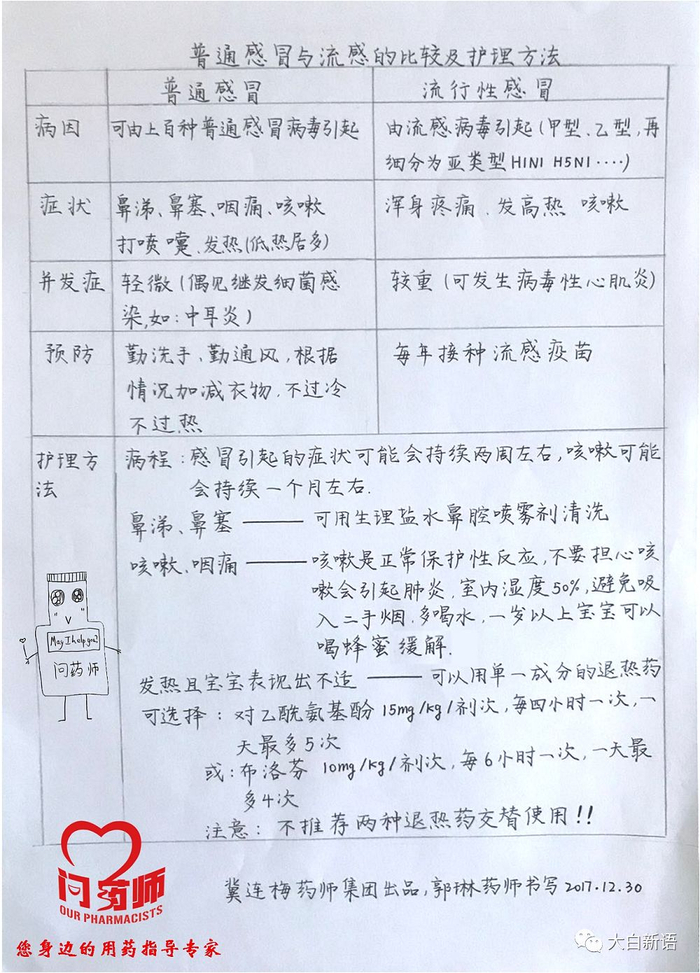 普通感冒与流感的比较及护理方法
普通感冒
流行性感冒
病因
可由上百种普通感冒病毒引起
由流感病毒引起(甲型、乙型,再
细分为亚类型H1N1 H5N1····)
症状
鼻涕、鼻塞、咽痛、咳嗽
打喷嚏、发热(低热居多)
浑身疼痛、发高热 咳嗽
并发症
轻微(偶见继发细菌感
染,如:中耳炎)
较重(可发生病毒性心肌炎)
预防
勤洗手、勤通风,根据
情况加减衣物,不过冷
不过热
每年接种流感疫苗
护理方
法
病程:感冒引起的症状可能会持续两周左右,咳嗽可能
会持续一个月左右.
鼻涕、鼻塞——可用生理盐水鼻腔喷雾剂清洗
咳嗽、咽痛——咳嗽是正常保护性反应,不要担心咳
嗽会引起肺炎,室内湿度50%,避免吸
入二手烟.多喝水,一岁以上宝宝可以
喝蜂蜜缓解.
发热且宝宝表现出不适——可以用单一成分的退热药
可选择:对乙酰氨基酚15mg/kg/剂次,每四小时一次,一
天最多5次
或:布洛芬 10mg/kg/剂次,每6小时一次,一天最
多4次
注意:不推荐两种退热药交替使用!!
May I help you?
问药师
问药师
OUR PHARMACISTS
您身边的用药指导专家
冀连梅药师集团出品,郭琳药师书写2017.12.30
大白新语